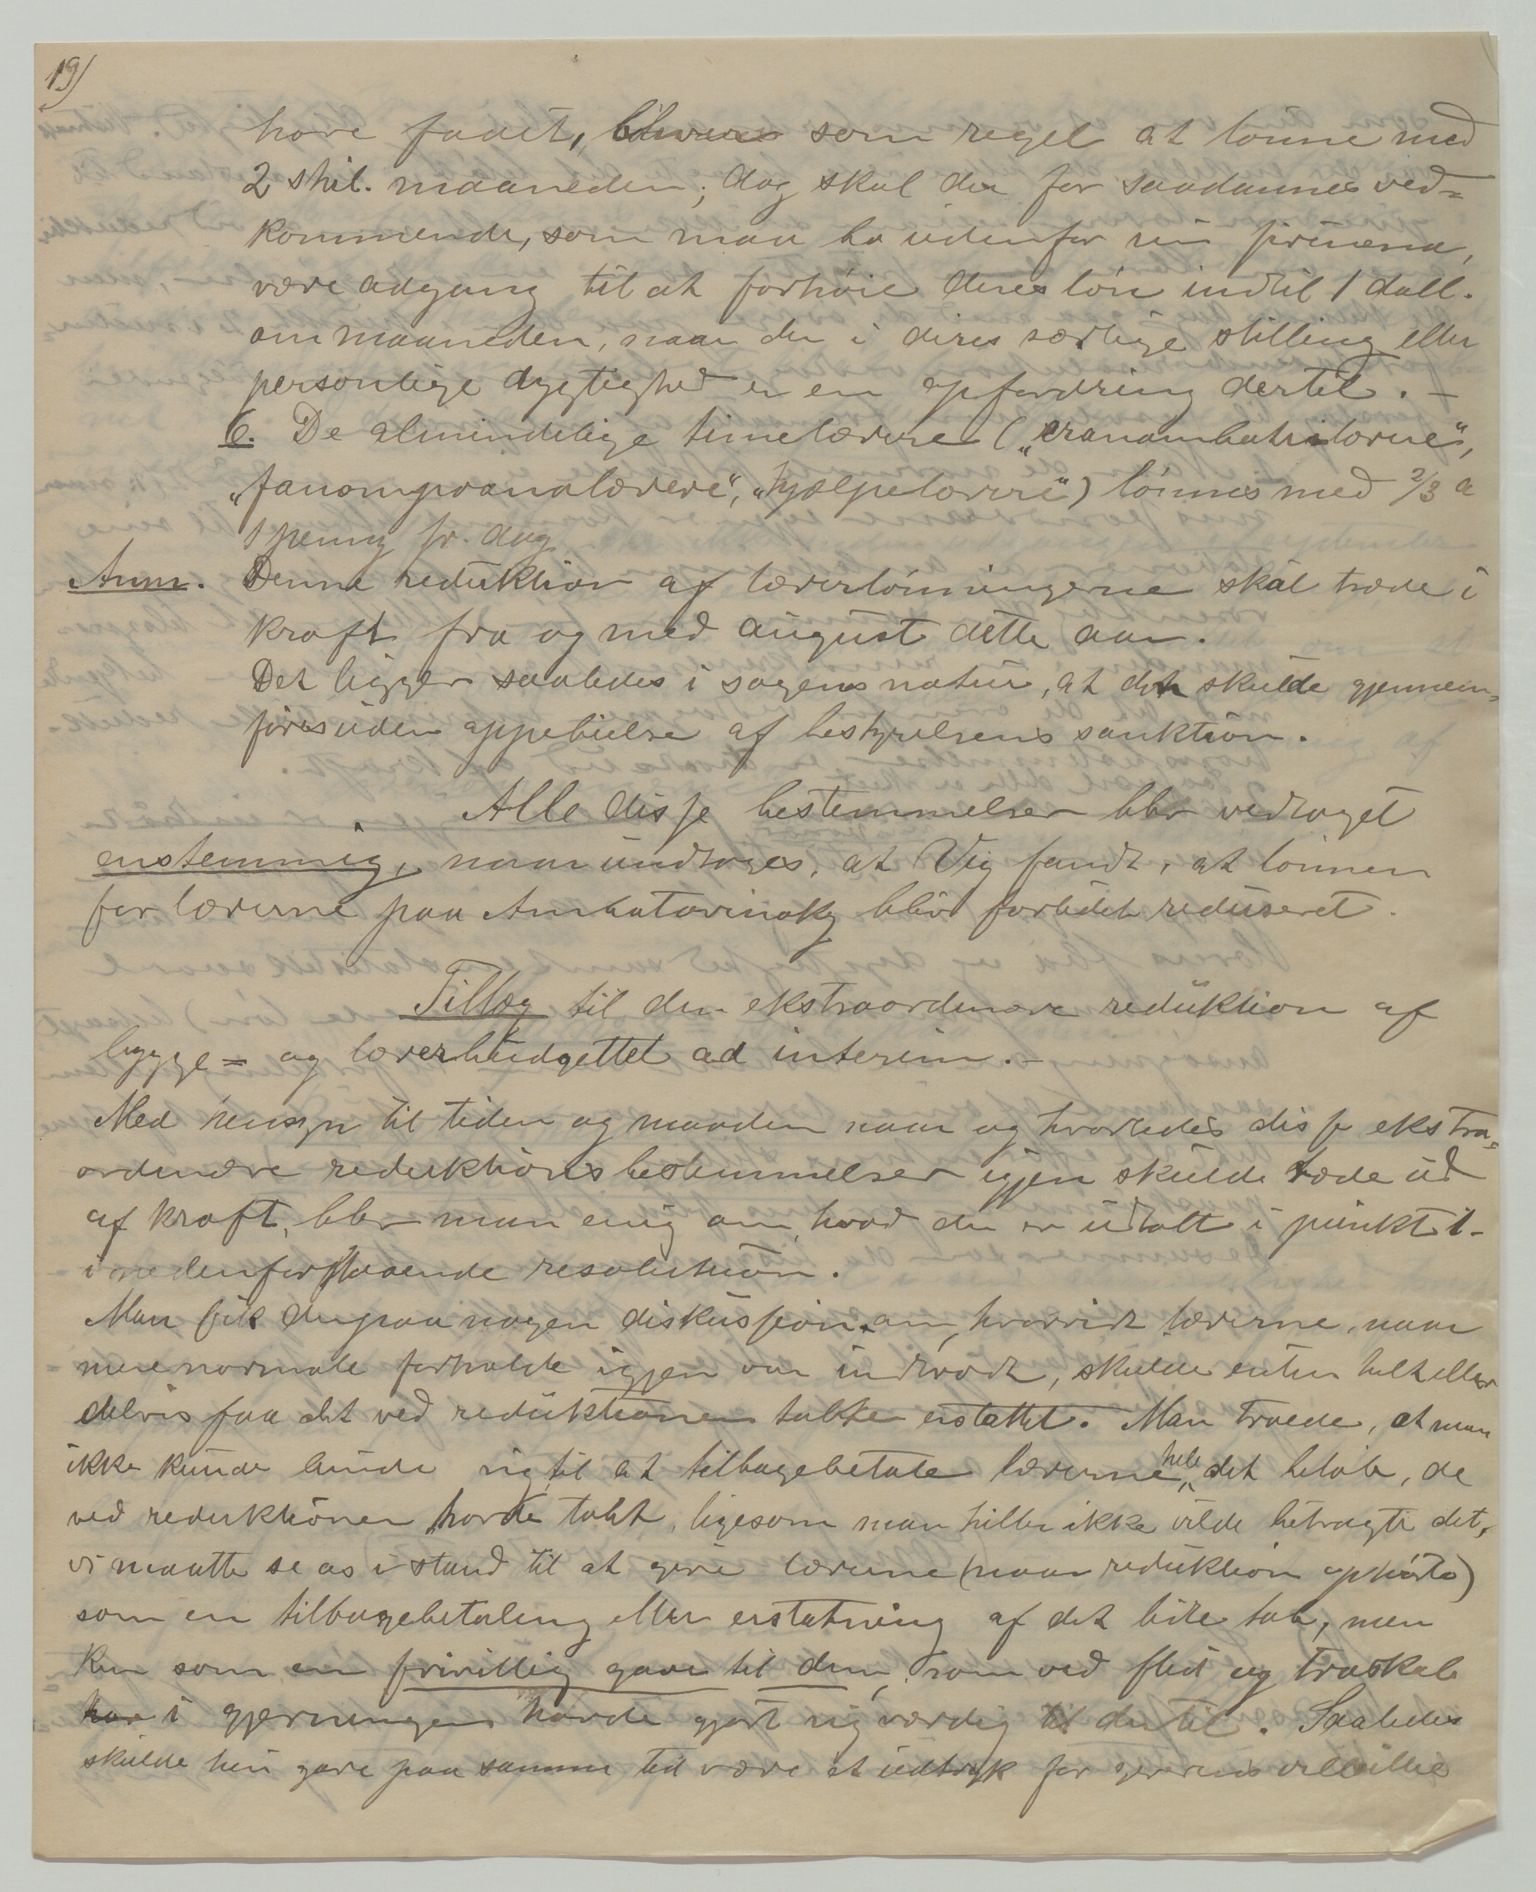 19)
have faaet, blivere som regel at lønne med
2 skil. maaneden; dog skal der for saadannes ved-
kommende, som maa bo udenfor sin  være adgang til at forhøie deres løn indtil 1 doll.
om maaneden, naar der i deres særlige stilling eller
personlige dygtighed er en opfordring dertil. –
6. De almindelige timelærere („
„fanompoanalærere“, „hjælpelærere“) lønnes med 2/3 a
1 penny pr. dag.
Anm. Denne reduktion af lærerlønningerne skal træde i
kraft fra og med august dette aar.
Det ligger saaledes i sagens natur, at den skulde gjennem-
føres uden appebielse af bestyrelsens sanktion.
Alle disse bestemmelser blev vedtaget
enstemmig, naar undtages, at Vig fandt, at lønnen
for lærerne paa Ambatovinaky blev forlidet reduseret.
Tillæg til den ekstraordinære reduktion af
bygge- og lærerbudgettet ad interim. –
Med hensyn til tiden og maaden naar og hvorledes disse ekstra-
ordinære reduktionsbestemmelser igjen skulde træde ud
af kraft, blev man enig om, hvad der er udtalt i punkt 1-
i nedenforstaaende resolution.
Man fik derpaa nogen diskussion om, hvorvidt lærerne, naar
mere normale forholde igjen var indtraadt, skulde enten helt eller
delvis faa det ved reduktionen tabte erstattet. Man troede, at man
ikke kunde binde sig til at tilbagebetale lærerne hele det beløb, de
ved reduktionen havde tabt, ligesom man heller ikke vilde betragte det,
vi maatte se os i stand til at give lærerne (naar reduktion ophørte)
som en tilbagebetaling eller erstatning af det lidte tab, men
kun som en frivillig gave til dem, som ved flid og troskab
i gjerningen havde gjort sig værdig til dertil. Saaledes
skulde hin gave paa samme tid være et udtryk for giverens velvillie